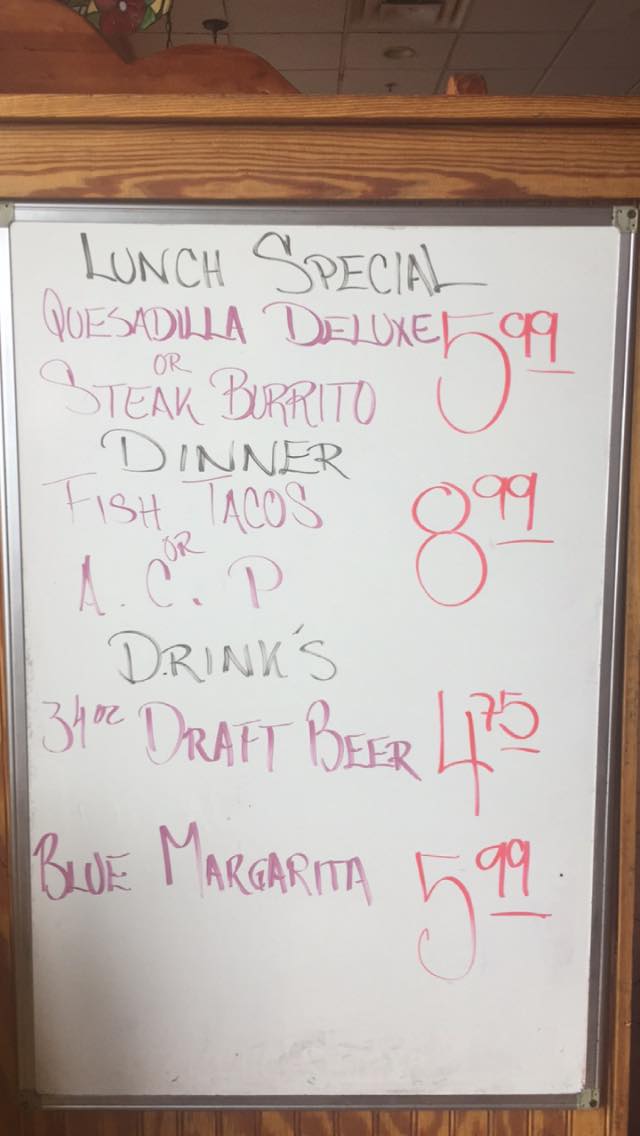 LUNCH SPECIAL
QUESADILLA DELUXE 5 99
OR
STEAK BURRITO
DINNER
FISH TACOS 8 99
OR
A. C. P
DRINK'S
34 oz DRAFT BEER 4 75
BLUE MARGARITA 5 99